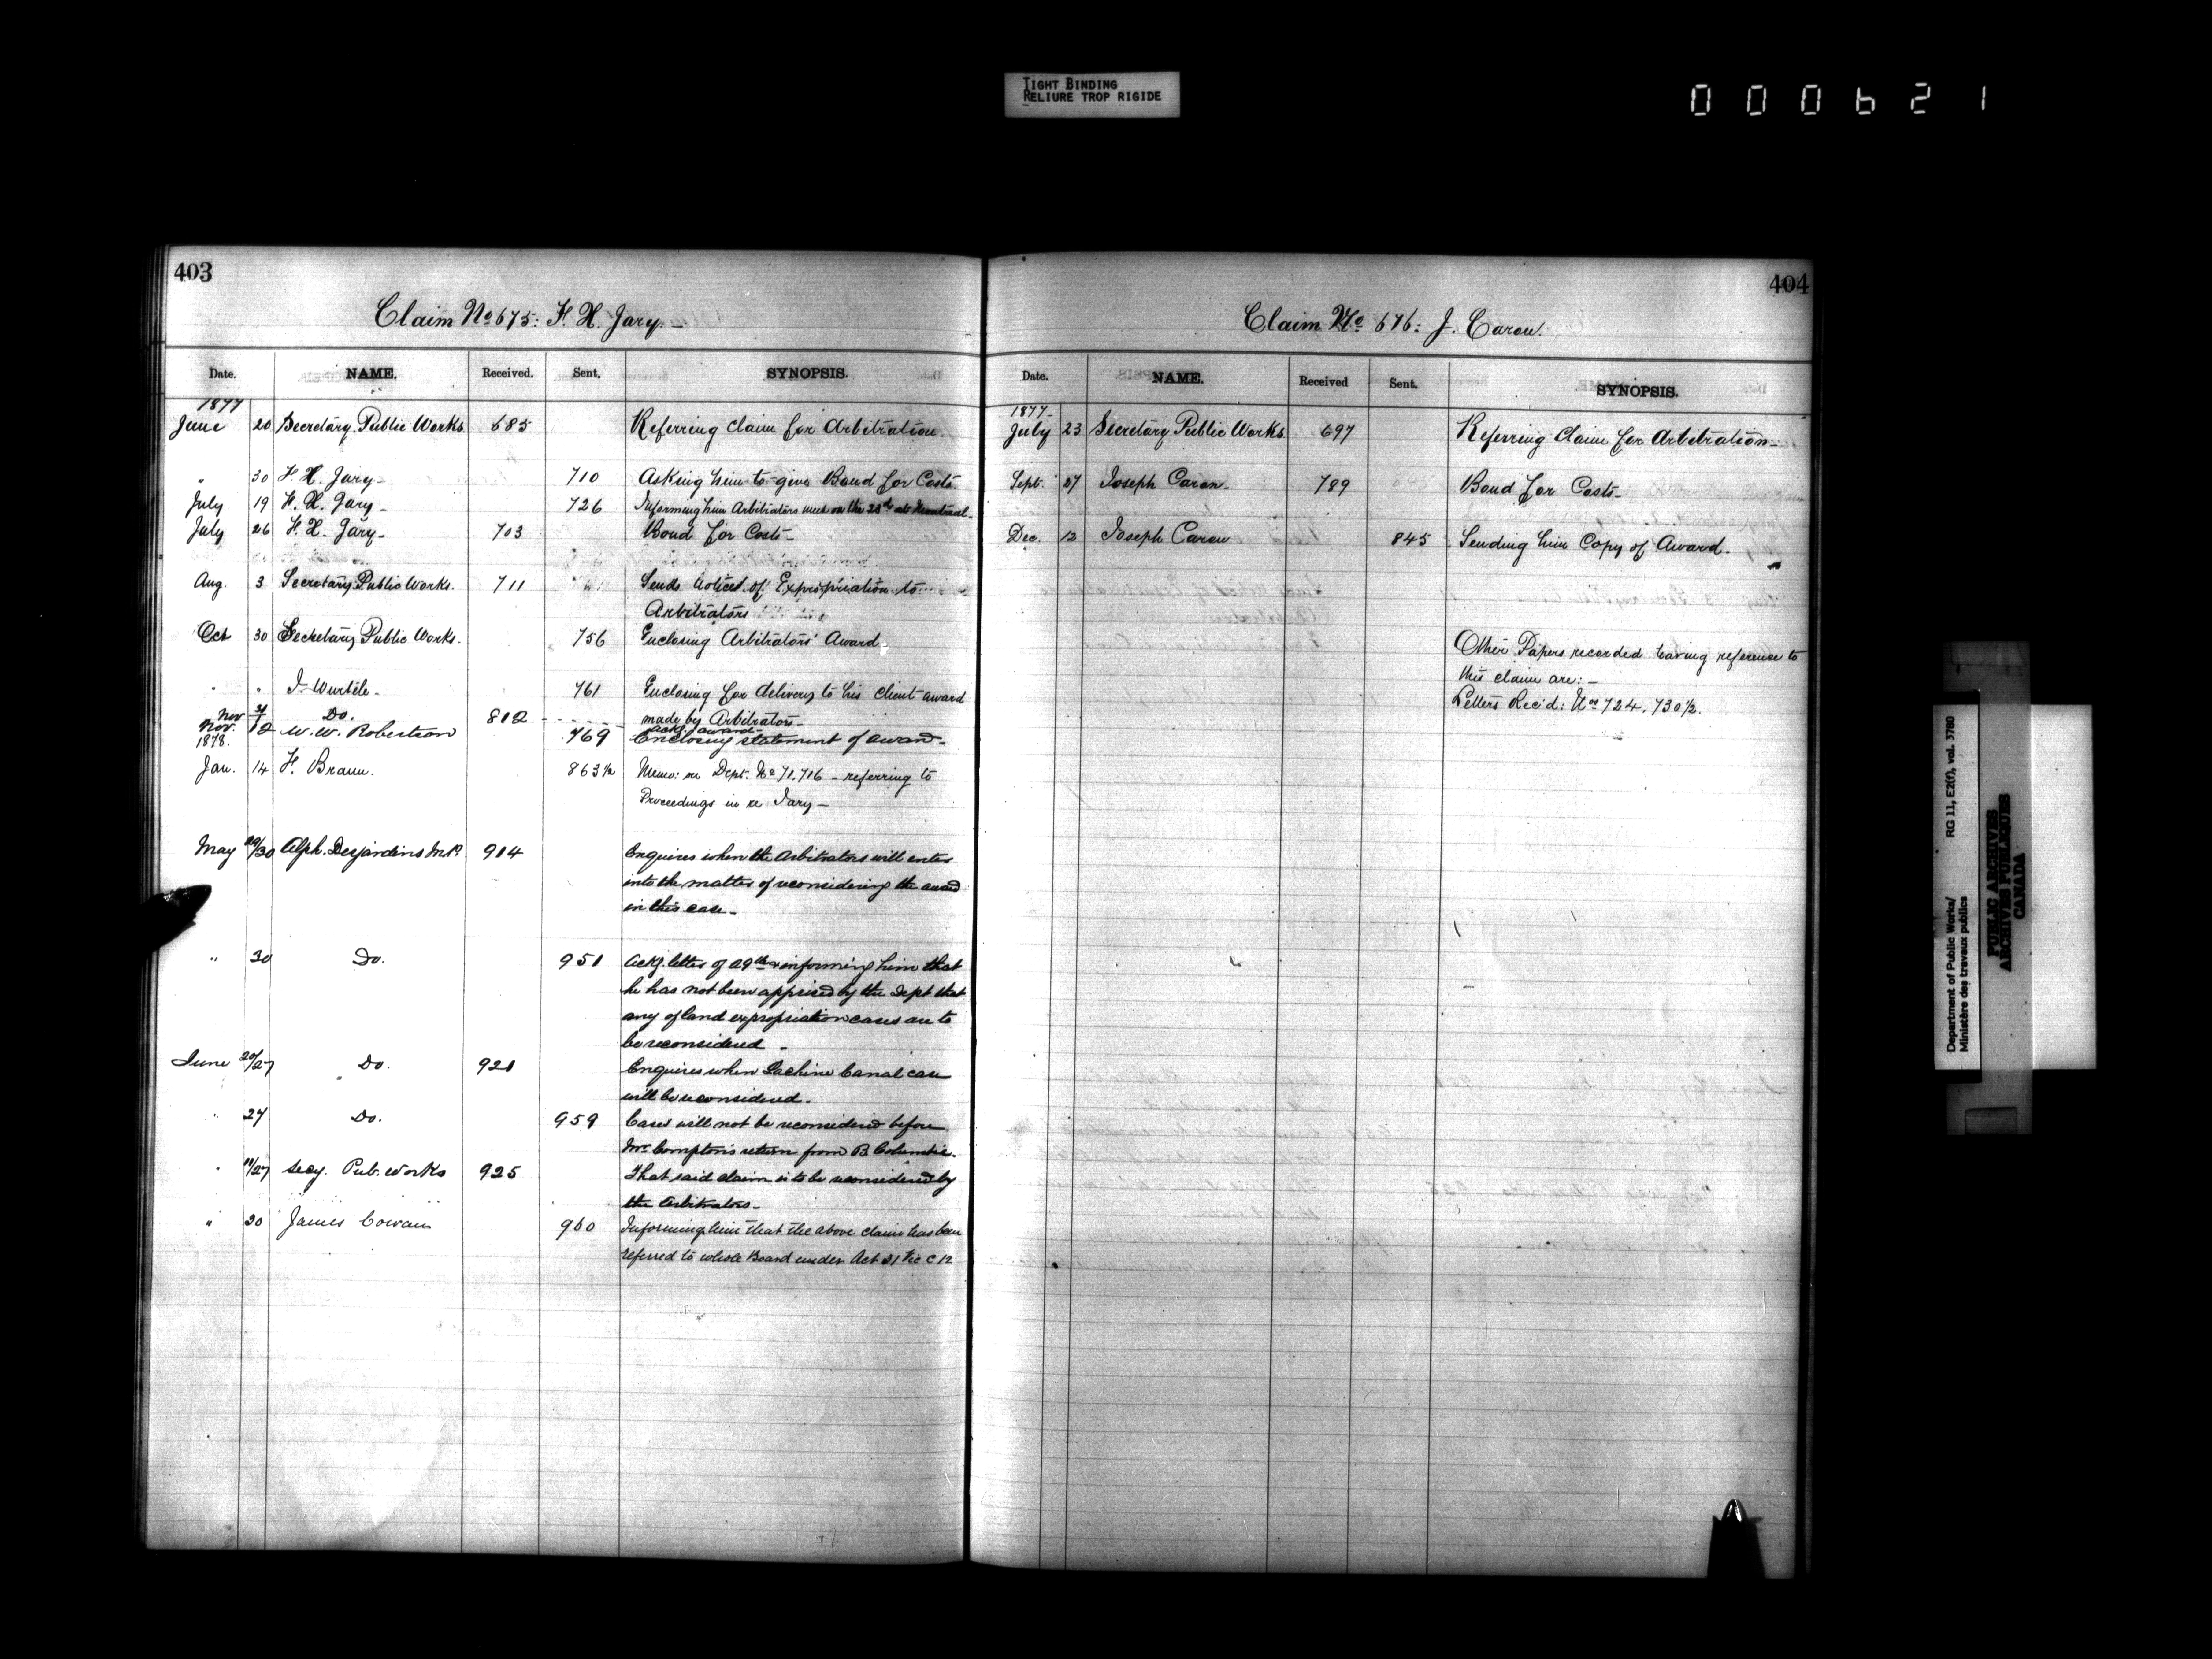 TIGHT BINDING
RELIURE TROP RIGIDE
000621
403
Claim No 675: F. X. Jary.
Date. NAME. Received. Sent. SYNOPSIS.
1877
June 20 Secretary Public Works. 685 Referring claim for Arbitration.
" 30 F. X. Jary 710 Asking him to give Bond for Costs.
July 19 F. X. Jary 726 Informing him Arbitrators meet on the 23rd at Montreal.
July 26 F. X. Jary 703 Bond for Costs
Aug. 3 Secretary Public Works. 711 Sends notices of Expropriation to
Arbitrators
Oct 30 Secretary Public Works. 756 Enclosing Arbitrators' Award
" " J. Wurtele 761 Enclosing for delivery to his client award
made by Arbitrators
Nov Do. 812 Ackg. award
Nov. 12 W. W. Robertson 769 Enclosing statement of award
1878.
Jan. 14 F. Braun. 863½ Memo: re Dept. No 71.716 - referring to
Proceedings in re Jary
May 29/30 Alph. Desjardins M.P. 914 Enquires when the Arbitrators will enter
into the matter of reconsidering the award
in this case
" 30 Do. 951 Ackg. letter of 29th & informing him that
he has not been apprised by the Dept that
any of land expropriation cases are to
be reconsidered
June 20/27 Do. 921 Enquires when Lachine Canal case
will be reconsidered.
" 27 Do. 959 Cases will not be reconsidered before
Mr Compton's return from B. Columbia.
" /27 Secy. Pub. Works 925 That said claim is to be reconsidered by
the Arbitrators
" James Cowan 960 Informing him that the above claim has been
referred to whole Board under Act 31 Vic C 12
404
Claim No 676: J. Caron.
Date. NAME. Received Sent. SYNOPSIS.
1877
July 23 Secretary Public Works. 697 Referring Claim for Arbitration
Sept. 27 Joseph Caron 789 Bond for Costs
Dec. 12 Joseph Caron 845 Sending him Copy of Award.
Other Papers recorded having reference to
this claim are:
Letters Rec'd: Nos 724, 730½.
Department of Public Works/ RG 11, E2(f), vol. 3780
Ministère des travaux publics
PUBLIC ARCHIVES
ARCHIVES PUBLIQUES
CANADA